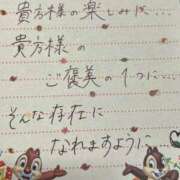 貴方様の楽しみは…
貴方様の
ご褒美の1つに…
そんな存在に
なれますように…